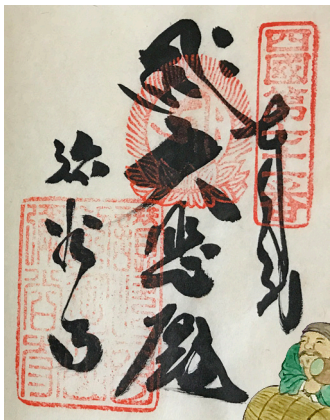 四國第七十一番
奉納
大悲殿
弥谷寺